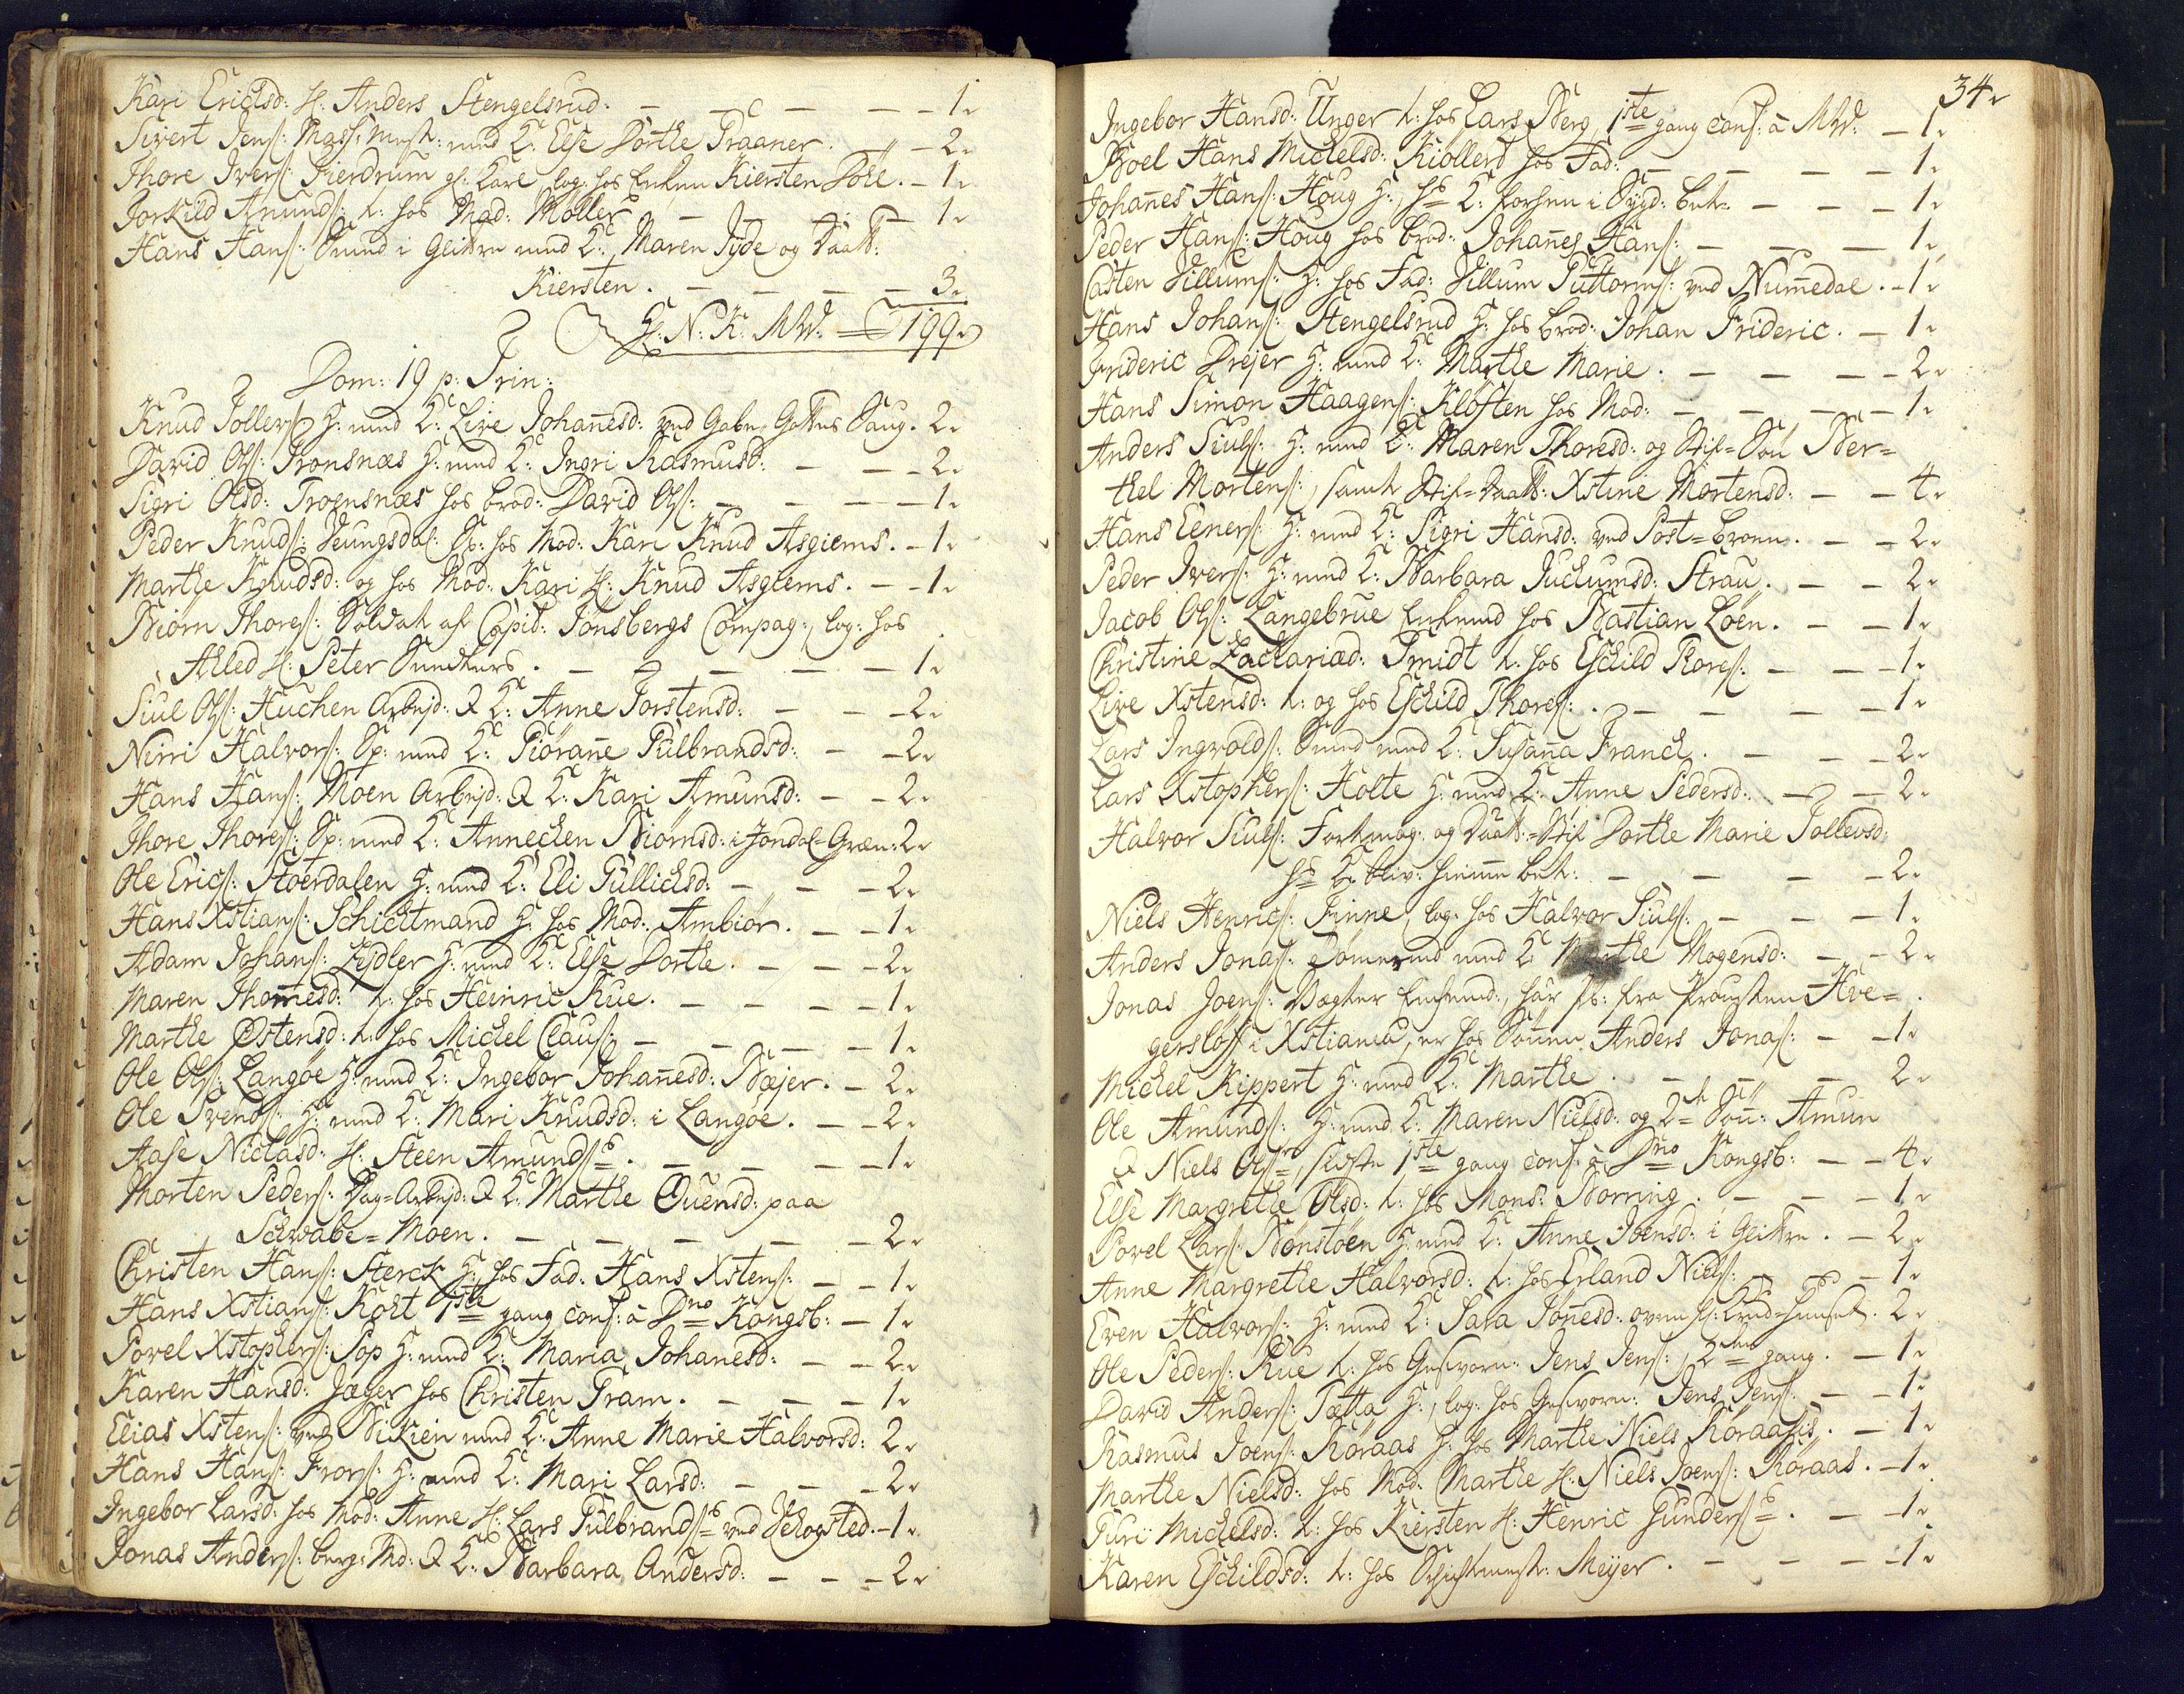 Kari Erichsd: H: Anders Stengelsrud. — — — — 1.
Sivert Jens: Mass: Mest: med K: Else Dorthe Praaner. — — 2.
Thore Ivers: Fierdrum gl: Karl, log: hos Enken Kiersten Doll. — 1.
Torkild Amunds: t: hos Mad: Møller — — — 1.
Hans Hans: Smed i med K: Maren Tyde og Daatt:
Kiersten. — — — — 3.
H: N: K: MW: = 199.
Dom: 19 p: Trin:
Knud Tollefs: H: med K: Live Johanesd: ved Gabe Gottes Saug. 2.
David Ols: Tronsnæs H: med K: Ingri Rasmusd: — — 2.
Sigri Olsd: Troensnæs hos brod: David Ols: — — — 1.
Peder Knuds: Jeungsdal Sp: hos Mod: Kari Knud Asgiems. — 1.
Marthe Knudsd: og hos Mod: Kari H: Knud Asgiems. — — 1.
Biørn Thores: Soldat af Capit: Tonsbergs Compag:, log: hos
Alled H: Peter — — — — 1.
Siul Ols: Huchen Arbejd: & K: Anne Torstensd: — — 2.
Nirri Halvors: Sp: med K: Giørane Gulbrandsd: — — 2.
Hans Hans: Moen Arbejd: & K: Kari Amunsd: — — 2.
Thore Thores: Sp: med K: Annechen Biørnsd: i Jondal-Græn: 2.
Ole Erics: Støerdalen H: med K: Eli Gullichsd: — — — 2.
Hans Xstians: Schichtmand H: hos Mod: Ambiør. — — 1.
Adam Johans: Zejdler H: med K: Else Dorthe. — — — 2.
Maren Thomesd: t: hos Heinric Rue. — — — — 1.
Marthe Østensd: t: hos Michel Claus: — — — — 1.
Ole Ols: Langøe H: med K: Ingebor Johanesd: Bæjer. — 2.
Ole Svends: H: med K: Mari Knudsd: i Langøe. — — 2.
Aase Niclasd: H: Steen Amunds: — — — — 1.
Morten Peders: Dag-Arbejd: & K: Marthe Ouensd: paa
Schwabe-Moen. — — — — — 2.
Christen Hans: Sterck H: hos Fad: Hans Xstens: — — 1.
Hans Xstians: Kolt 1ste gang conf: à Dno Kongsb: — 1.
Povel Xstophers: Sop H: med K: Maria Johanesd: — — 2.
Karen Hansd: Jæger hos Christen Fram. — — — 1.
Elias Xstens: ved med K: Anne Marie Halvorsd: 2.
Hans Hans: Frors: H: med K: Mari Larsd: — — — 2.
Ingebor Larsd: hos Mod: Anne H: Lars Gulbrands: ved — 1.
Jonas Anders: berg: Md: & K: Barbara Andersd: — — — 2.
34.
Ingebor Hansd: Unger t: hos Lars Berg, 1ste gang conf: à MW: — 1.
Boel Hans Michelsd: Kiøllerd hos Fad: — — — — 1.
Johanes Hans: Houg H:, K: forhen i Sygd: bet: — — — 1.
Peder Hans: Houg hos brod: Johanes Hans: — — — 1.
Casten Villums: H: hos Fad: Villum Guttorms: ved Numedal. — 1.
Hans Johans: Stengelsrud H: hos brod: Johan Frideric. — 1.
Frideric Drejer H: med K: Marthe Marie. — — — — 2.
Hans Simon Haagens: Kløften hos Mod: — — — — 1.
Anders Siuls: H: med K: Maren Thoresd: og Stif-Søn Ber-
thel Mortens:, samt Stif-Daatt: Xstine Mortensd: — — 4.
Hans Eeners: H: med K: Sigri Hansd: ved Post-broen. — — 2.
Peder Ivers: H: med K: Barbara Juchumsd: Strau. — — 2.
Jacob Ols: Langebrue Enkemd hos Bastian Loen. — — 1.
Christine Zachariæd: Smidt t: hos Eschild Thores: — — — 1.
Live Xstensd: t: og hos Eschild Thores: — — — — 1.
Lars Ingvolds: Smed med K: Susana Franck. — — — 2.
Lars Xstophers: Holte H: med K: Anne Pedersd: — — 2.
Halvor Siuls: Fortmag: og Daatt:-Stif Dorthe Marie Tollevsd:
K: bliv: hieme bet: — — — — 2.
Niels Henrics: Finne, log: hos Halvor Siuls: — — — 1.
Anders Jonas: Tømermd med K: Marthe Mogensd: — — 2.
Jonas Joens: Vægter Enkemd:, har fra Provsten Hve-
gersløff i Xstiania, er hos Sønen Anders Jonas: — — 1.
Michel Kippert H: med K: Marthe. — — — 2.
Ole Amunds: H: med K: Maren Nielsd: og 2 Søn: Amun
& Niels Ols:, sidste 1ste gang conf: à Dno Kongsb: — — 4.
Else Margrethe Olsd: t: hos Mons: Borning. — — — 1.
Povel Lars: Bonstøen H: med K: Anne Joensd: i — 2.
Anne Margrethe Halvorsd: t: hos Erland Niels: — — — 1.
Even Halvors: H: med K: Sara Tonesd: 2.
Ole Peders: Rue t: hos Gesvorn: Jens Jens:, 2den gang. — 1.
David Anders: Tætta H:, log: hos Gesvorn: Jens Jens: — — 1.
Rasmus Joens: Røraas H: hos Marthe Niels Røraases. — 1.
Marthe Nielsd: hos Mod: Marthe H: Niels Joens: Røraas. — 1.
Guri Michelsd: t: hos Kiersten H: Henric Gunders: — — 1.
Karen Eschildsd: t: hos Schichtmest: Meyer. — — — 1.